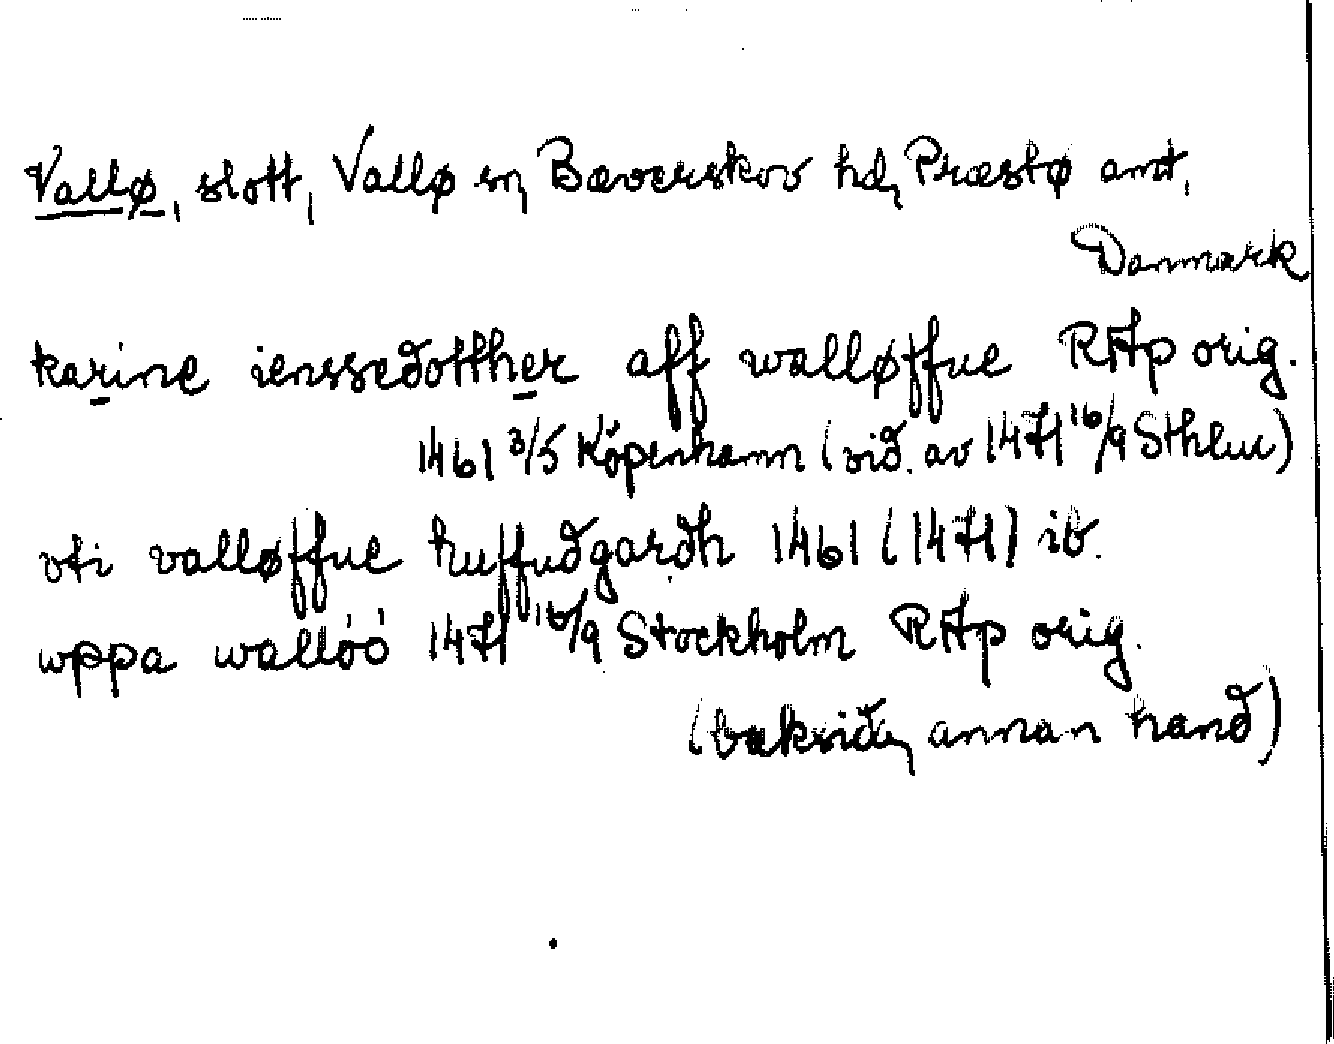 Vallø, slott, Vallø sn, Bæverskov hd, Præstø amt,
Danmark
karine ienssedotther aff walløffue RAp orig.
1461 3/5 Köpenhamn (vid. av 1471 16/9 Sthlm)
vti valløffue huffudgardh 1461 (1471) ib.
wppa wallóó 1471 16/9 Stockholm RAp orig.
(baksida, annan hand)